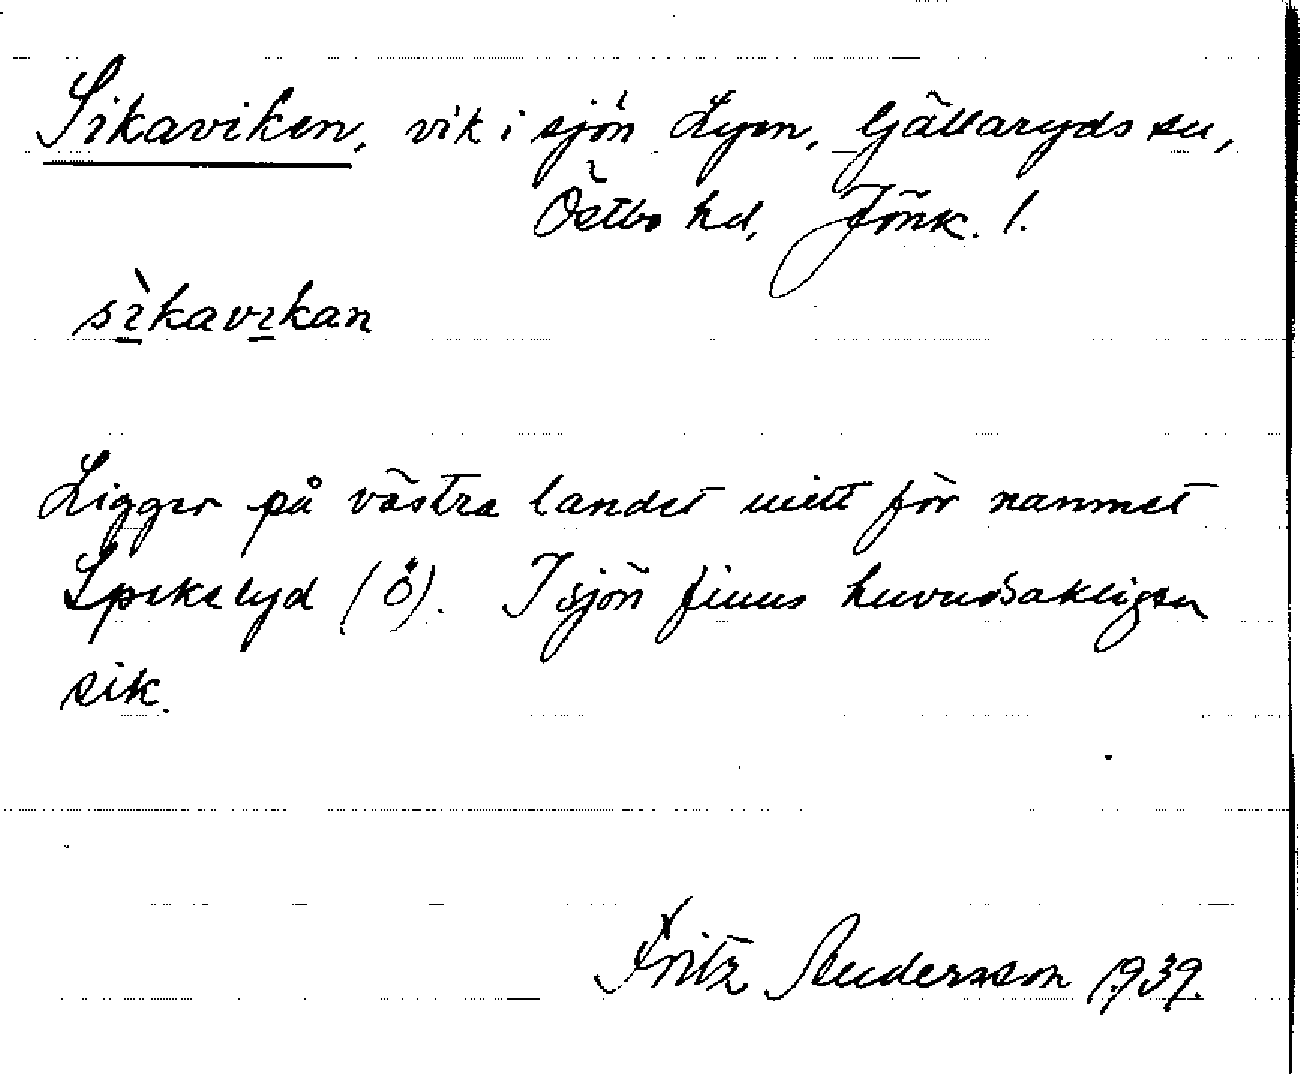 Sikaviken, vik i sjön Lyen, Gällaryds sn,
Östbo hd, Jönk. l.
sìkavikan
Ligger på västra landet mitt för namnet
Spekelyd (ö). I sjön finns huvudsakligen
sik.
Fritz Andersson 1939.